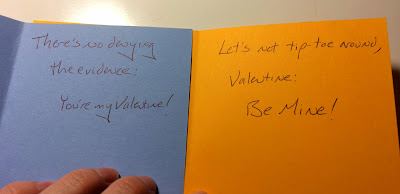 There's no denying
the evidence:
You're my Valentine!
Let's not tip-toe around,
Valentine:
Be Mine!